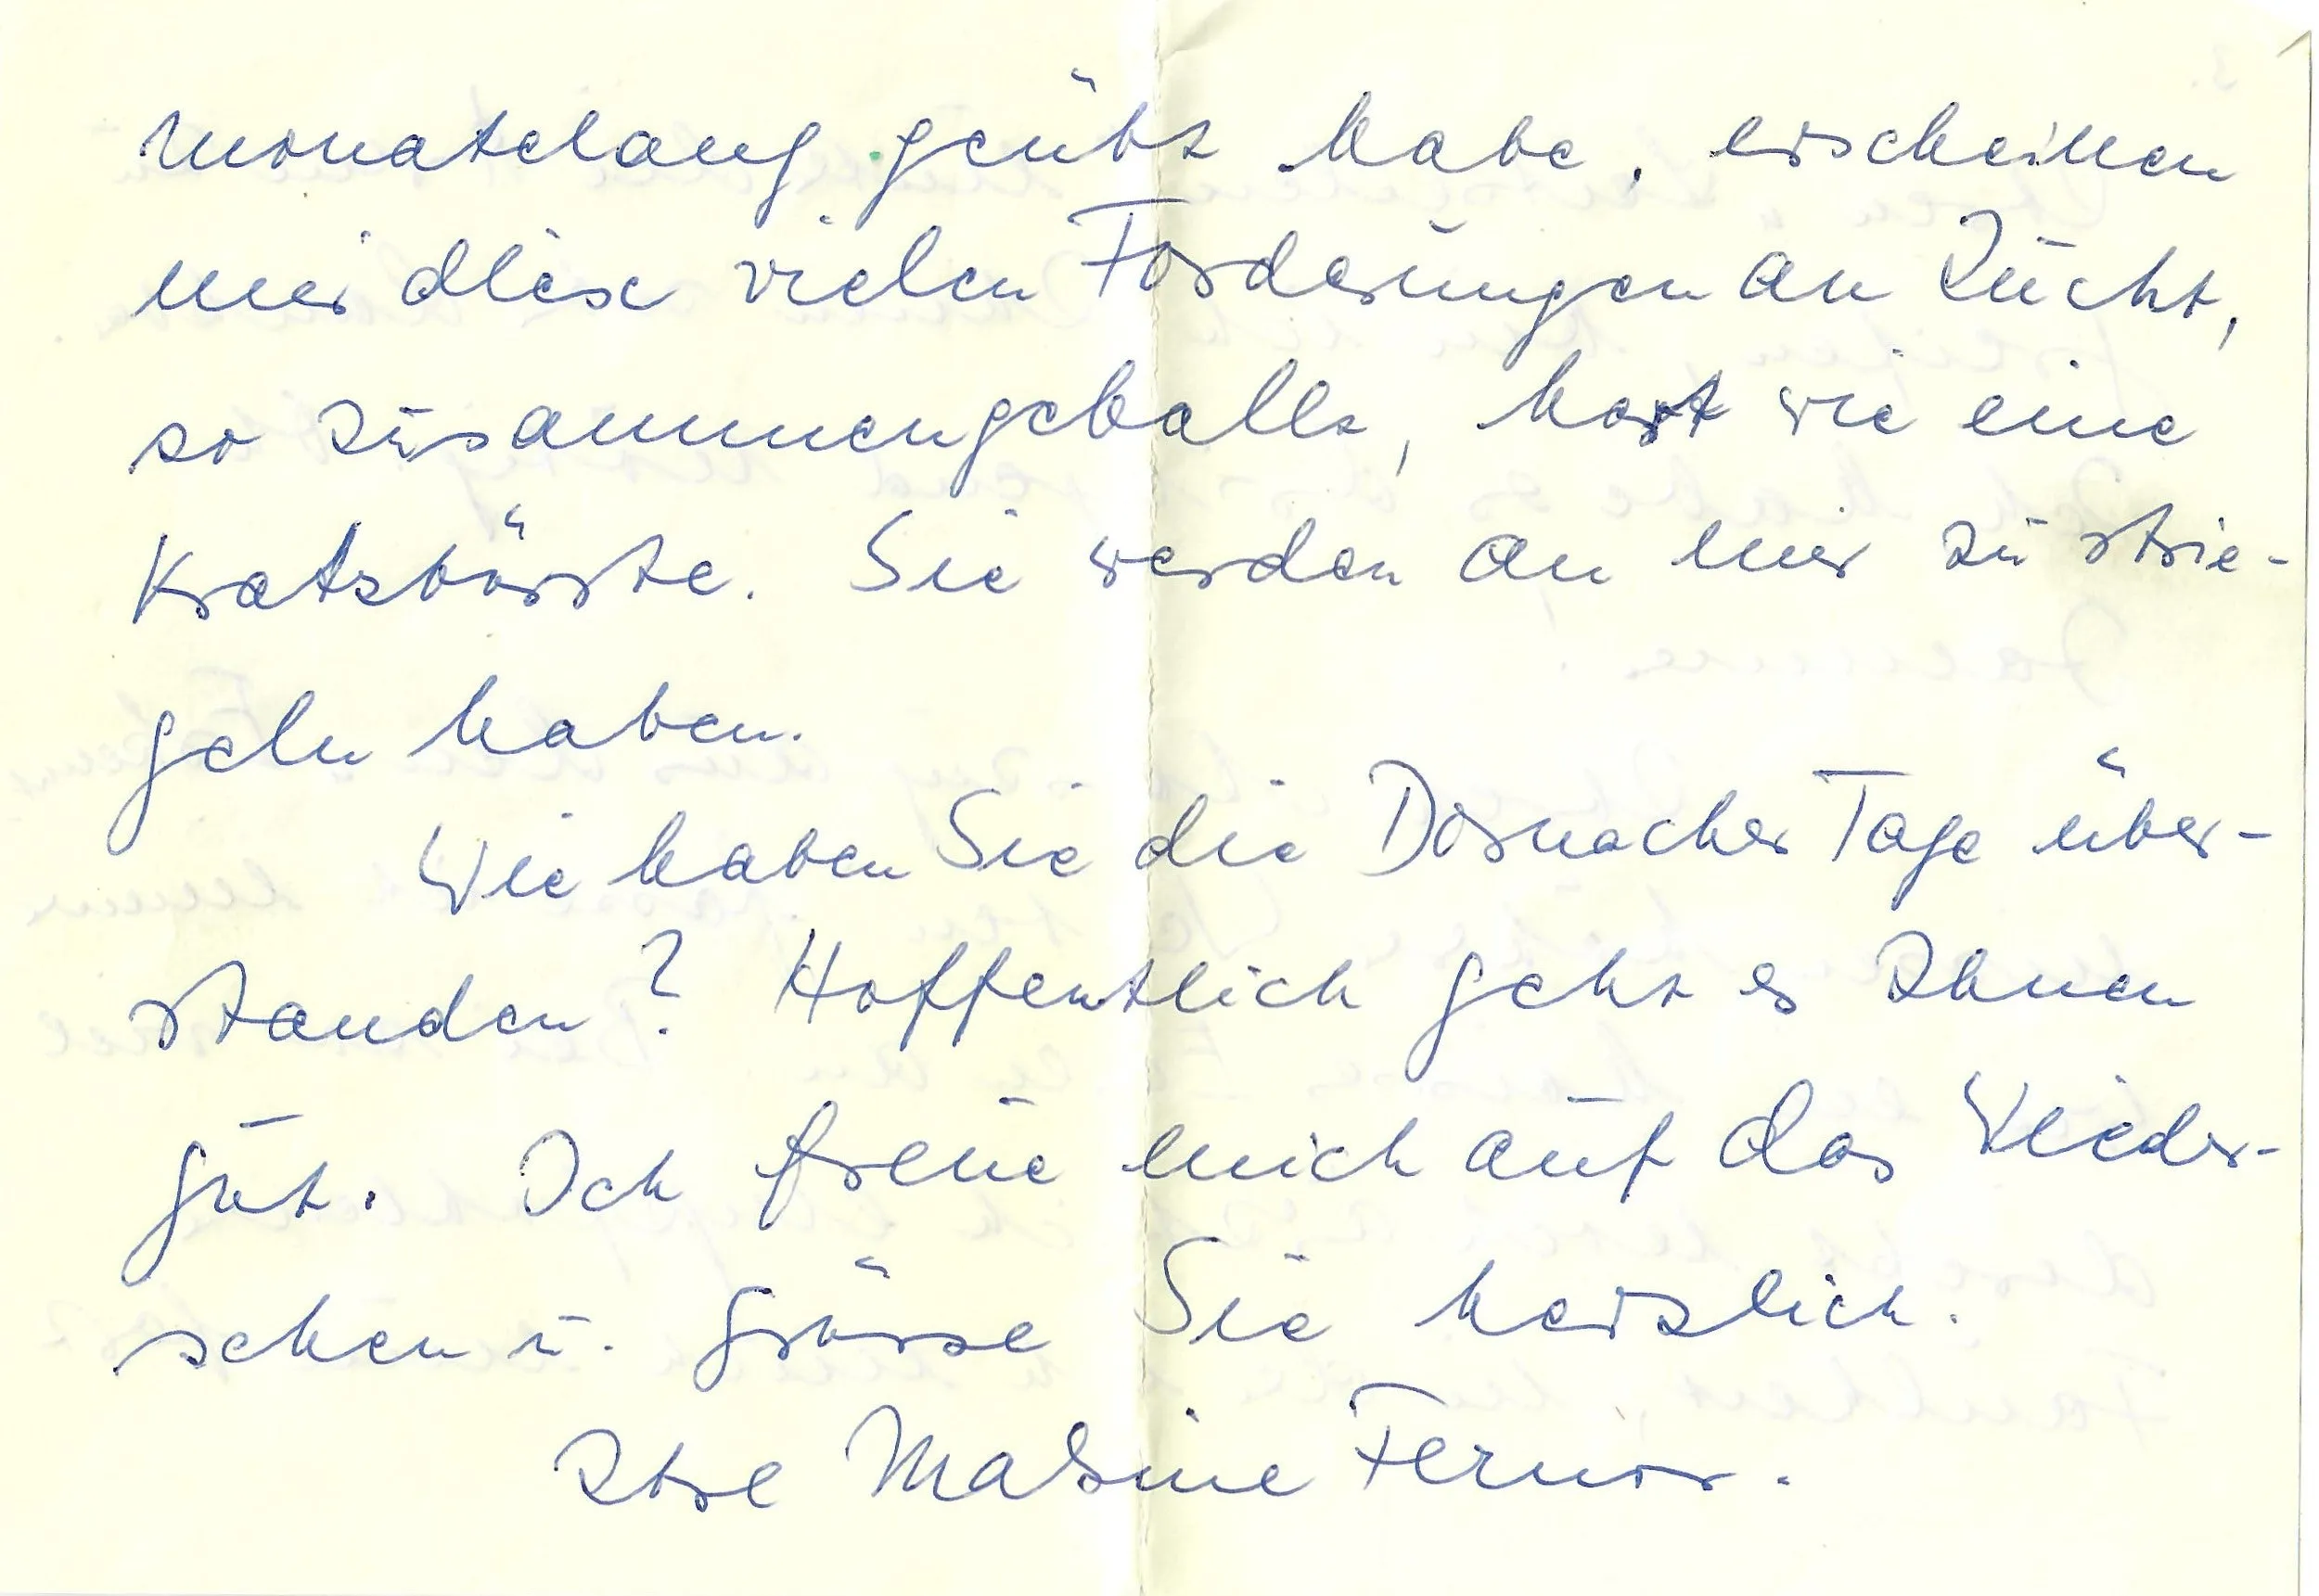 monatelang geübt habe, erscheinen
mir diese vielen Forderungen an Zucht,
so zusammengeballt, hart wie eine
Kratzbürste. Sie werden an mir zu strie-
geln haben.
Wie haben Sie die Dornacher Tage über-
standen? Hoffentlich geht es Ihnen
gut. Ich freue mich auf das Wieder-
sehen u. grüsse Sie herzlich.
Ihre